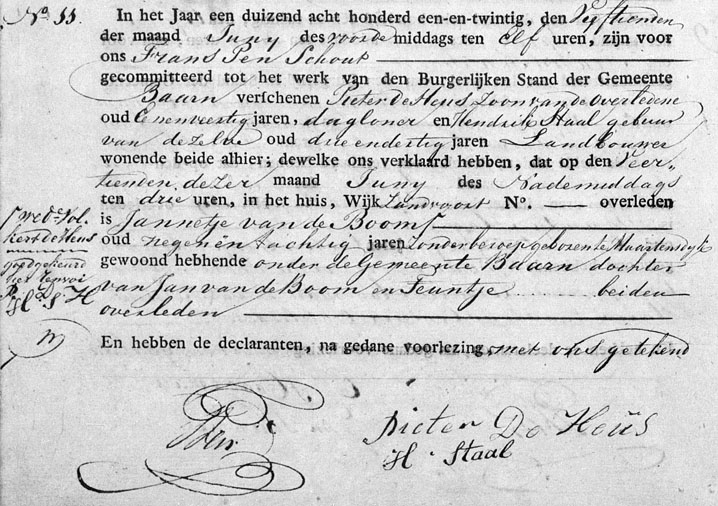 No. 33.
In het Jaar een duizend acht honderd een-en-twintig, den Vyftienden
der maand Juny des voorde middags ten Elf uren, zijn voor
ons Frans Pen Schout
gecommitteerd tot het werk van den Burgerlijken Stand der Gemeente
Baarn verschenen Pieter de Heus Zoon van de Overledene
oud Eenenveertig jaren, dagloner en Hendrik Staal gebuur
van dezelve oud drie endertig jaren Landbouwer
wonende beide alhier; dewelke ons verklaard hebben, dat op den Veer-
tienden dezer maand Juny des Nademiddags
ten drie uren, in het huis, Wijk Zandvoort No. — overleden
is Jannetje van de Boom
oud negen en tachtig jaren Zonder beroep geboren te Maartensdyk
gewoond hebhende onder de Gemeente Baarn dochter
van Jan van de Boom en Teuntje beiden
overleden
En hebben de declaranten, na gedane voorlezing, met ons getekend
wede. Vol-
kert de Heus
goedgekeurd
P D H
H. S.
Pieter De Heüs
H. Staal